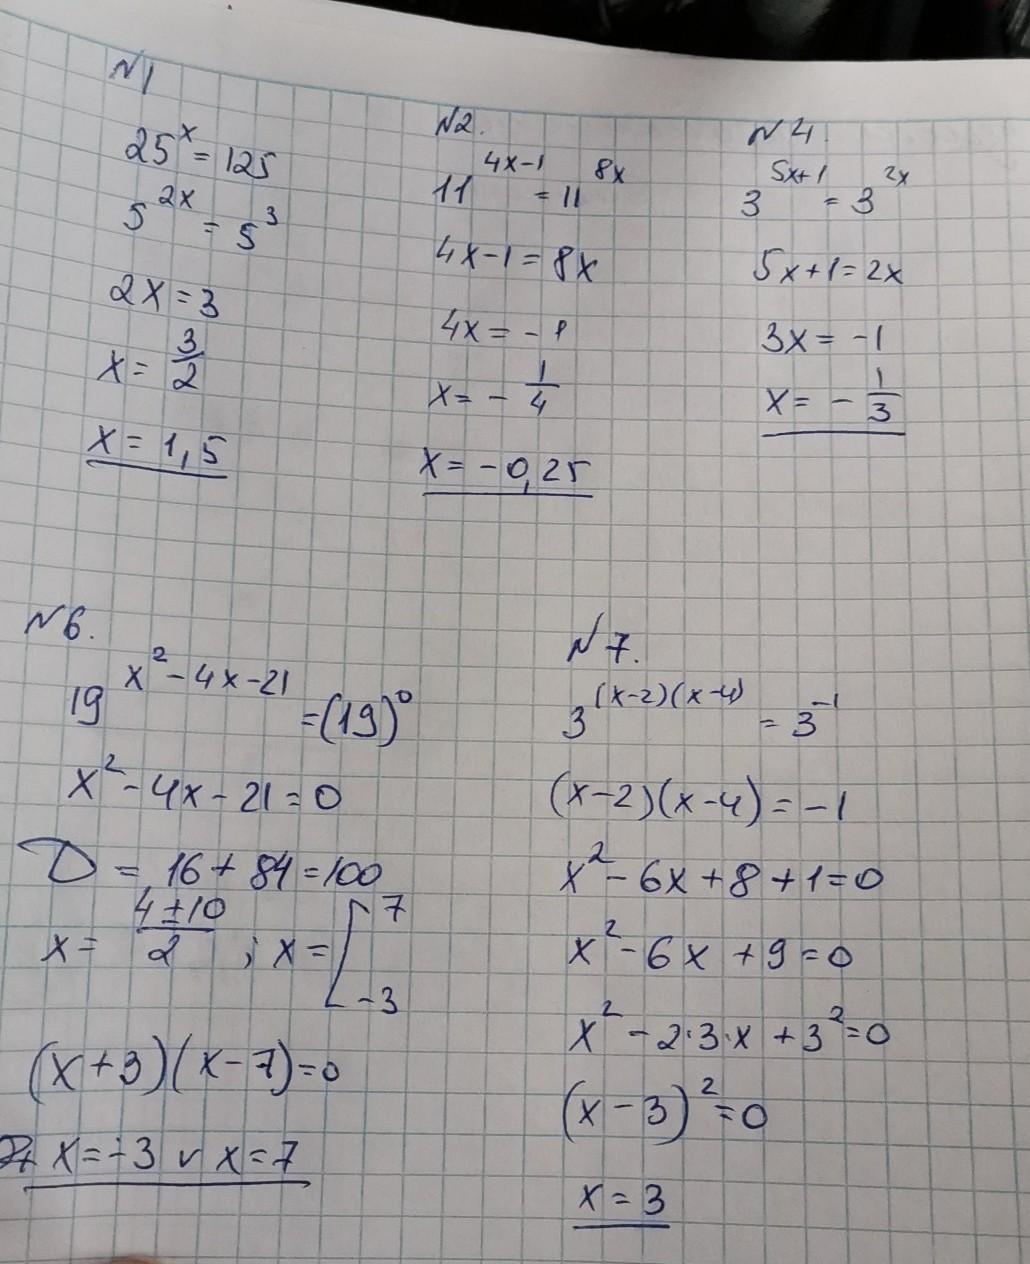 N1
25^x = 125
5^{2x} = 5^3
2x = 3
x = \frac{3}{2}
x = 1,5
N2.
11^{4x-1} = 11^{8x}
4x-1 = 8x
4x = -1
x = -\frac{1}{4}
x = -0,25
N4.
3^{5x+1} = 3^{2x}
5x+1 = 2x
3x = -1
x = -\frac{1}{3}
N6.
19^{x^2-4x-21} = (19)^0
x^2-4x-21 = 0
D = 16+84 = 100
x = \frac{4±10}{2} ; x = [7 -3
(x+3)(x-7) = 0
x = -3 v x = 7
N7.
3^{(x-2)(x-4)} = 3^{-1}
(x-2)(x-4) = -1
x^2-6x+8+1 = 0
x^2-6x+9 = 0
x^2-2·3·x+3^2 = 0
(x-3)^2 = 0
x = 3